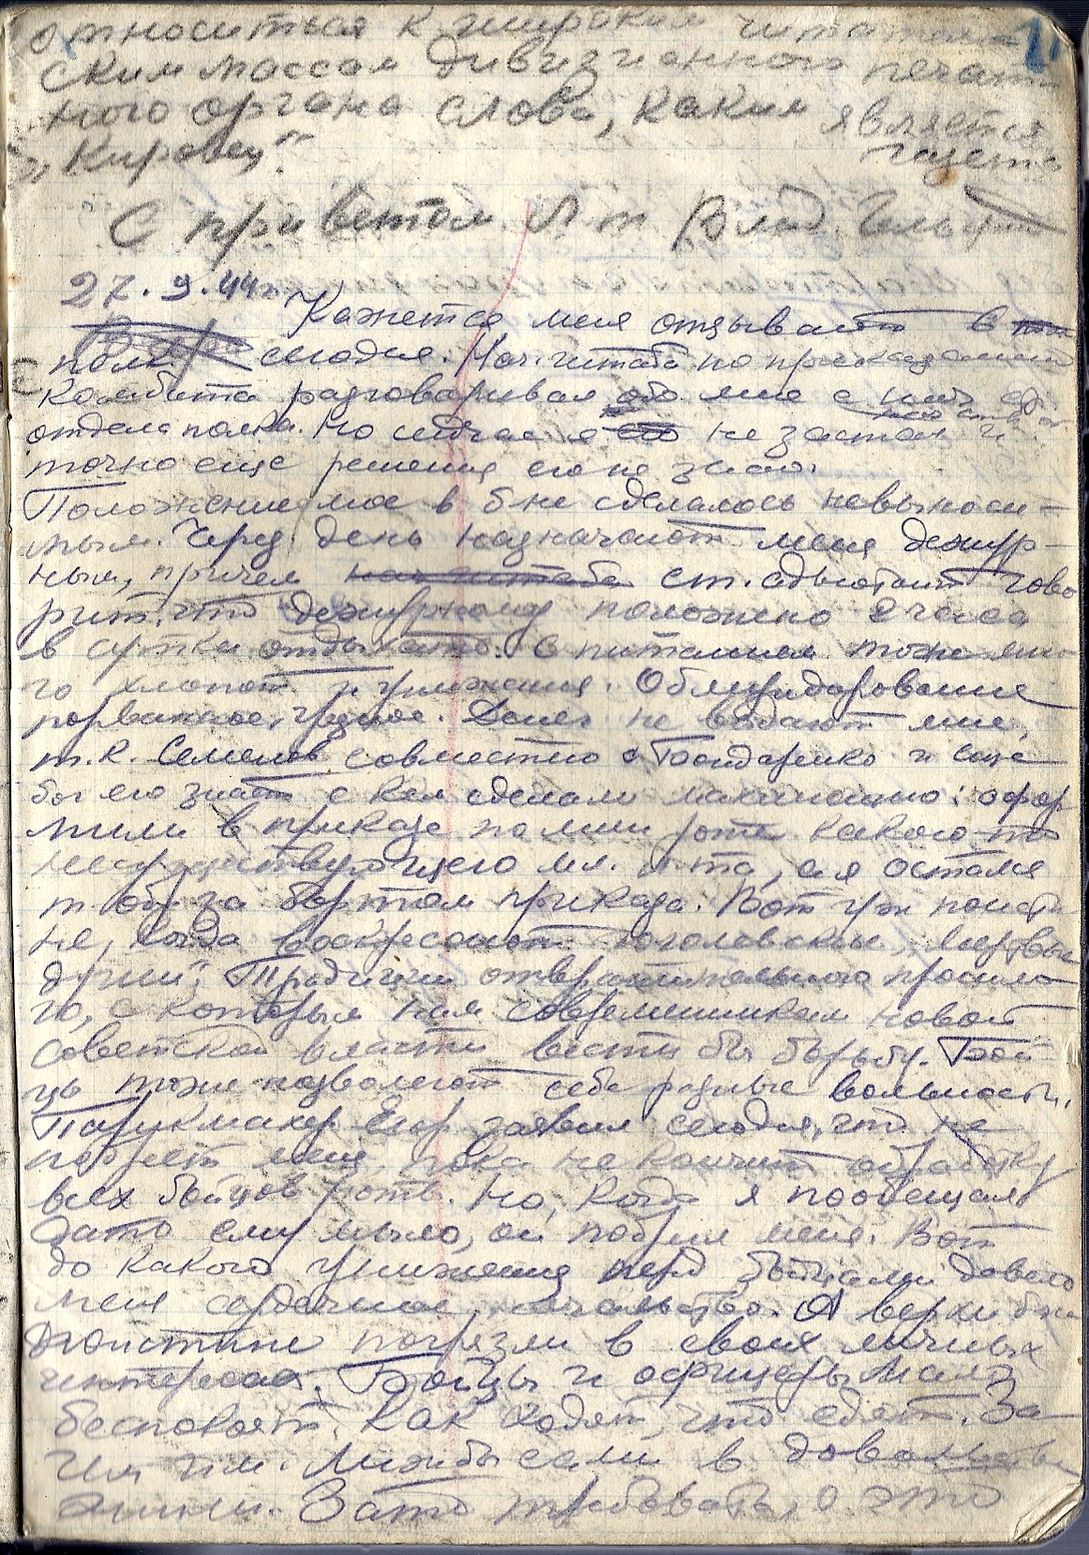 относиться к широким читатель-
ским массам дивизионного печат-
ного органа слова, каким является
газета
„Кировец".
С приветом Л-т Влад. Гельфанд
27.9.44г.
Кажется меня отзывают в
полк сегодня. Нач. штаба по приказанию
комбата разговаривал обо мне с
отдела полка. Но сейчас я его не застал и
точно еще решения его не знаю.
Положение мое в б-не сделалось невыноси-
мым. Через день назначают меня дежур-
ным, причем ст. адъютант гово
рит, что дежурному положено 2 часа
в сутки отдыхать. С питанием тоже мно
го хлопот и унижения. Обмундирование
порванное, грязное. Денег не выдают мне,
т.к. Семенов совместно с Бондаренко и еще
бог его знает с кем сделали махинацию: офор
мили в приказе по мин роте какого-то
несуществующего мл. л-та, а я остался
за бортом приказа. Вот уж поисти
не, когда воскресают гоголевские „Мертвые
души". Традиции отвратительного прошло
го, с которым нам современникам новой
советской власти вести бы борьбу. Бой-
цы тоже позволяют себе разные вольности.
Парикмахер Егор заявил сегодня, что не
побреет меня, пока не кончит обработку
всех бойцов роты. Но, когда я пообещал
дать ему мыло, он побрил меня. Вот
до какого унижения перед бойцами довело
меня сердечное начальство. А верхи б-на
погрязли в своих личных
интересах. Бойцы и офицеры мало
беспокоят. Как ходят, что едят. За
чем им. Лишь бы сами в довольстве
жили. Зато требовать, о это